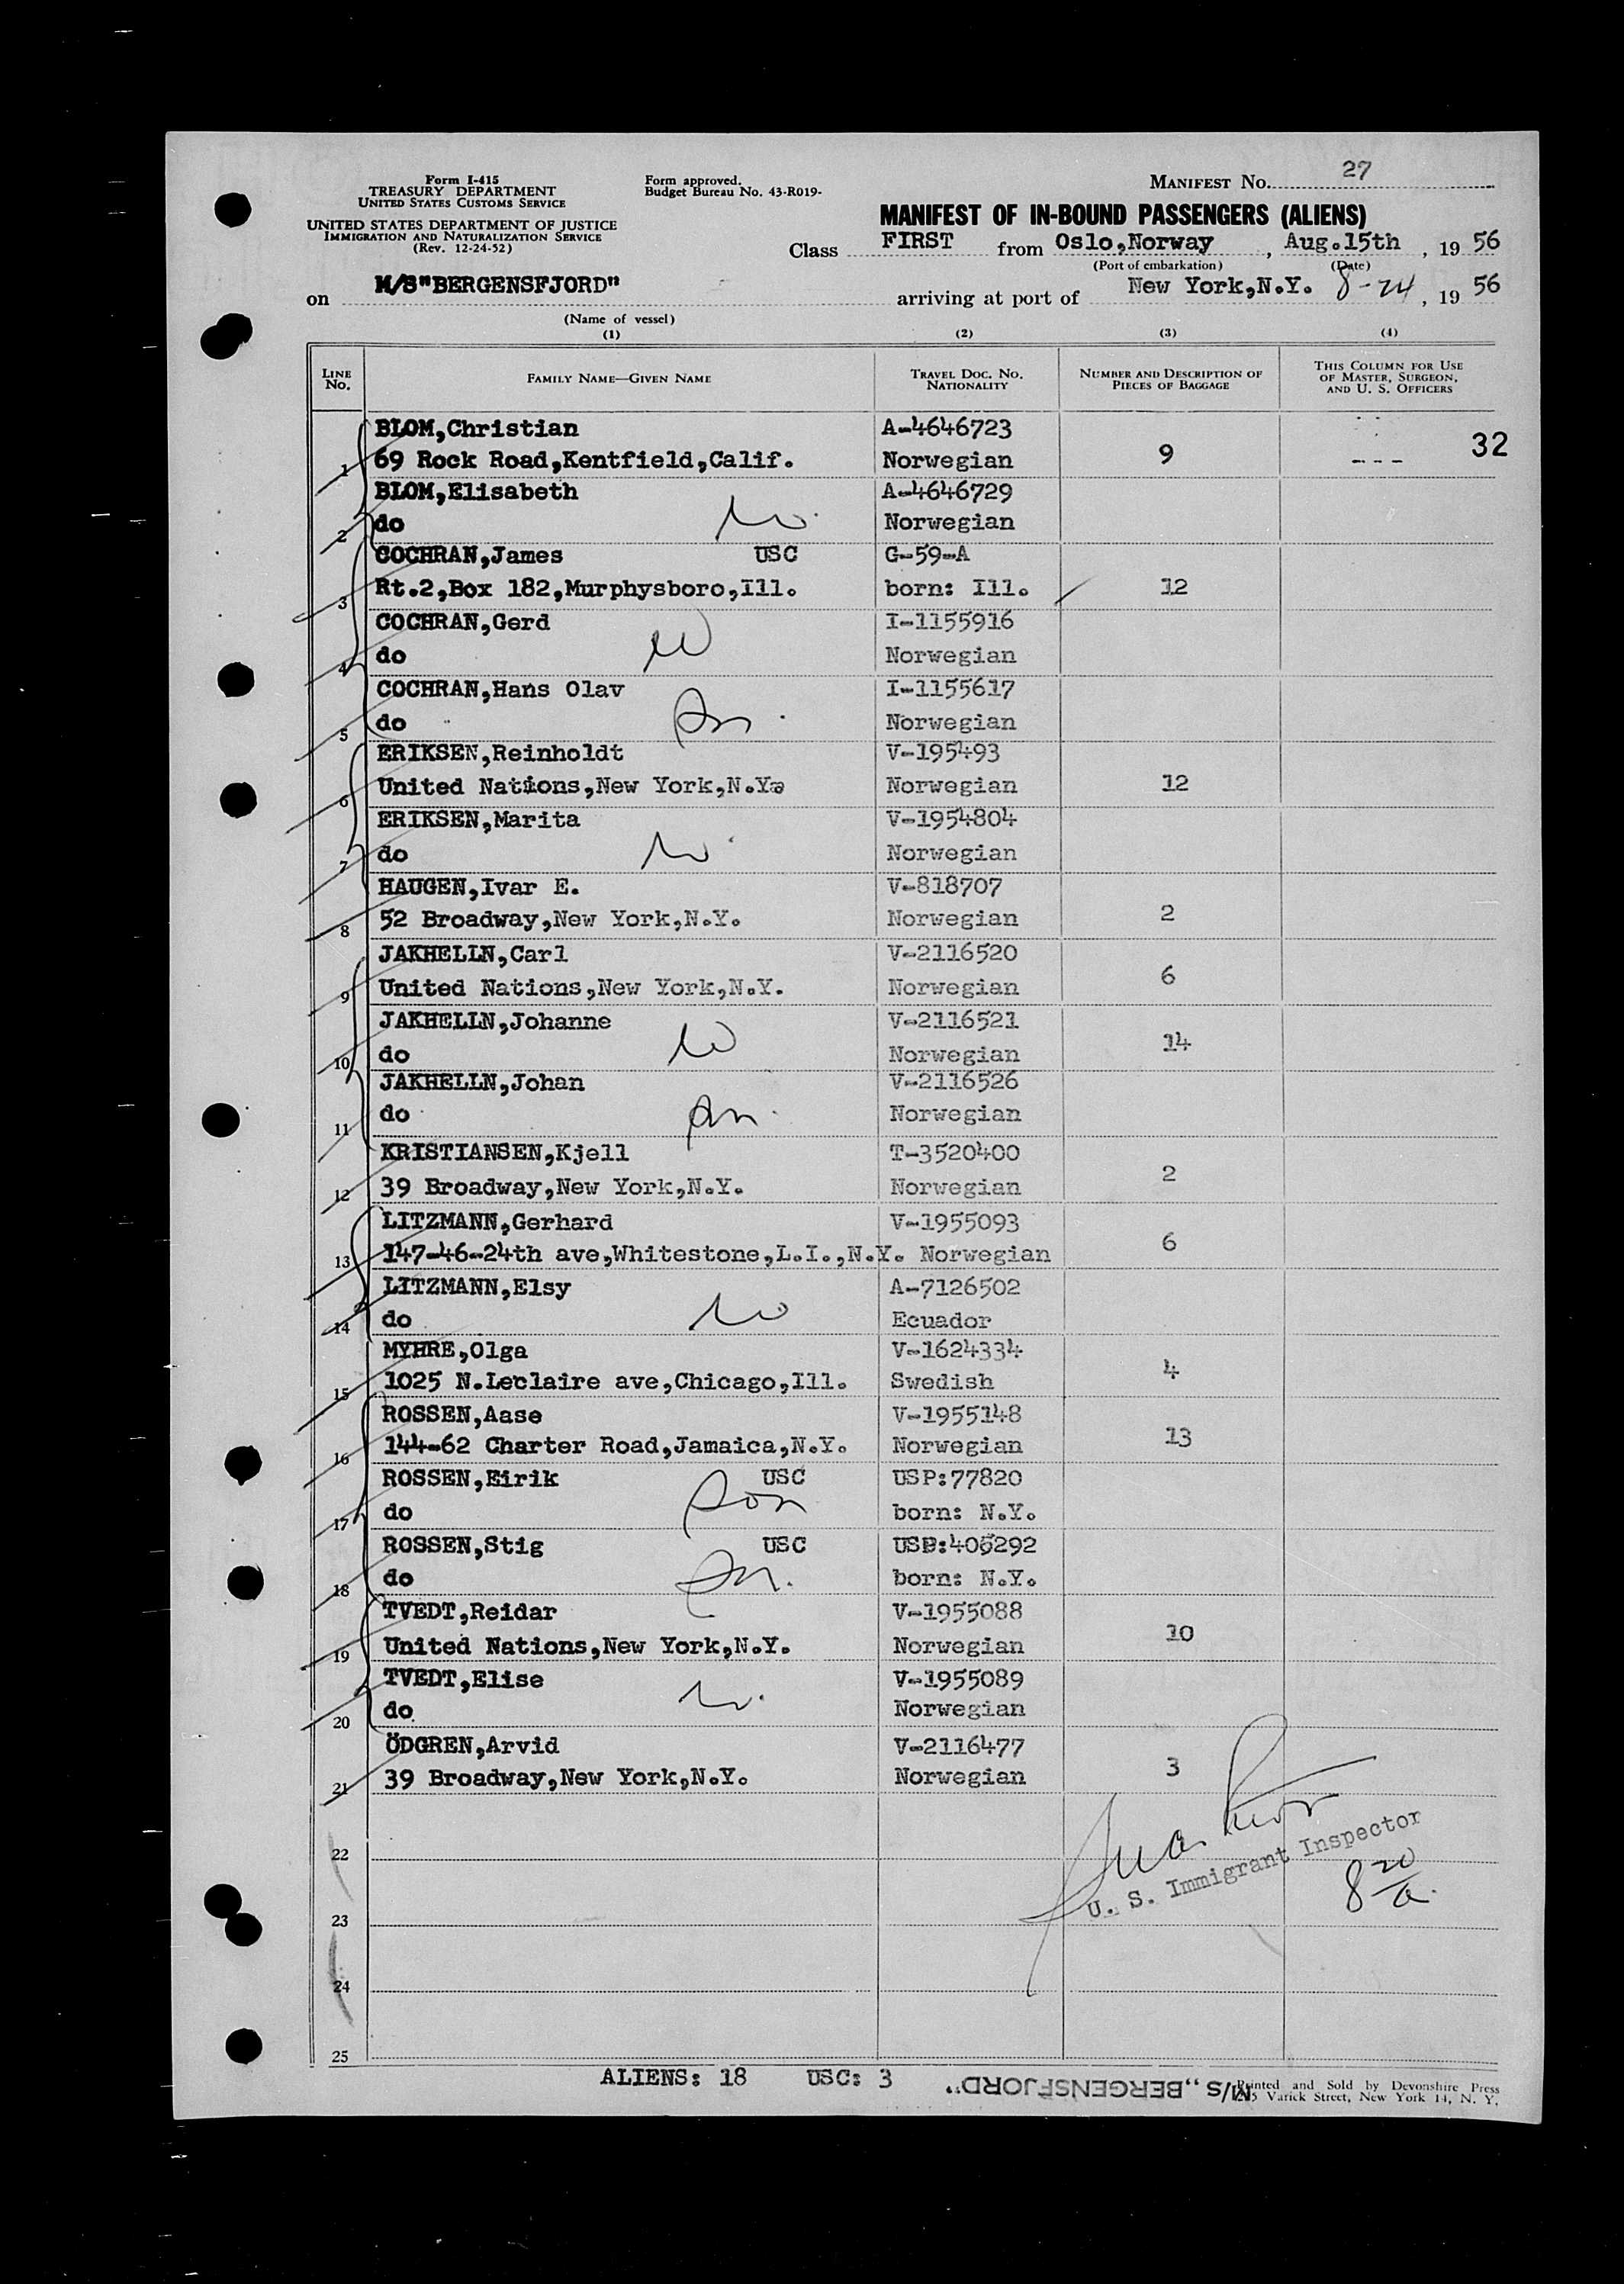 Form I-415
TREASURY DEPARTMENT
UNITED STATES CUSTOMS SERVICE
UNITED STATES DEPARTMENT OF JUSTICE
IMMIGRATION AND NATURALIZATION SERVICE
(Rev. 12-24-52)
Form approved.
Budget Bureau No. 43-R019-
MANIFEST NO. 27
MANIFEST OF IN-BOUND PASSENGERS (ALIENS)
Class FIRST from Oslo,Norway , Aug.15th , 19 56
(Port of embarkation) (Date)
on M/S"BERGENSFJORD" arriving at port of New York,N.Y. 8-24 , 19 56
(Name of vessel)
(1) (2) (3) (4)
LINE No. FAMILY NAME—GIVEN NAME TRAVEL DOC. NO. NATIONALITY NUMBER AND DESCRIPTION OF PIECES OF BAGGAGE THIS COLUMN FOR USE OF MASTER, SURGEON, AND U. S. OFFICERS
BLOM,Christian A-4646723
1 69 Rock Road,Kentfield,Calif. Norwegian 9 --- 32
BLOM,Elisabeth A-4646729
2 do Norwegian
COCHRAN,James USC G-59-A
3 Rt.2,Box 182,Murphysboro,Ill. born: Ill. 12
COCHRAN,Gerd I-1155916
4 do Norwegian
COCHRAN,Hans Olav I-1155617
5 do Norwegian
ERIKSEN,Reinholdt V-195493
6 United Nations,New York,N.Y. Norwegian 12
ERIKSEN,Marita V-1954804
7 do Norwegian
HAUGEN,Ivar E. V-818707
8 52 Broadway,New York,N.Y. Norwegian 2
JAKHELLN,Carl V-2116520
9 United Nations,New York,N.Y. Norwegian 6
JAKHELLN,Johanne V-2116521
10 do Norwegian 14
JAKHELLN,Johan V-2116526
11 do Norwegian
KRISTIANSEN,Kjell T-3520400
12 39 Broadway,New York,N.Y. Norwegian 2
LITZMANN,Gerhard V-1955093
13 147-46-24th ave,Whitestone,L.I.,N.Y. Norwegian 6
LITZMANN,Elsy A-7126502
14 do Ecuador
MYHRE,Olga V-1624334
15 1025 N.Leclaire ave,Chicago,Ill. Swedish 4
ROSSEN,Aase V-1955148
16 144-62 Charter Road,Jamaica,N.Y. Norwegian 13
ROSSEN,Eirik USC USP:77820
17 do son born: N.Y.
ROSSEN,Stig USC USP:405292
18 do born: N.Y.
TVEDT,Reidar V-1955088
19 United Nations,New York,N.Y. Norwegian 10
TVEDT,Elise V-1955089
20 do Norwegian
ÖDGREN,Arvid V-2116477
21 39 Broadway,New York,N.Y. Norwegian 3
22
U. S. Immigrant Inspector
8 20/a.
23
24
25
ALIENS: 18 USC: 3 M/S „BERGENSFJORD"
Printed and Sold by Devonshire Press
Varick Street, New York 14, N. Y.